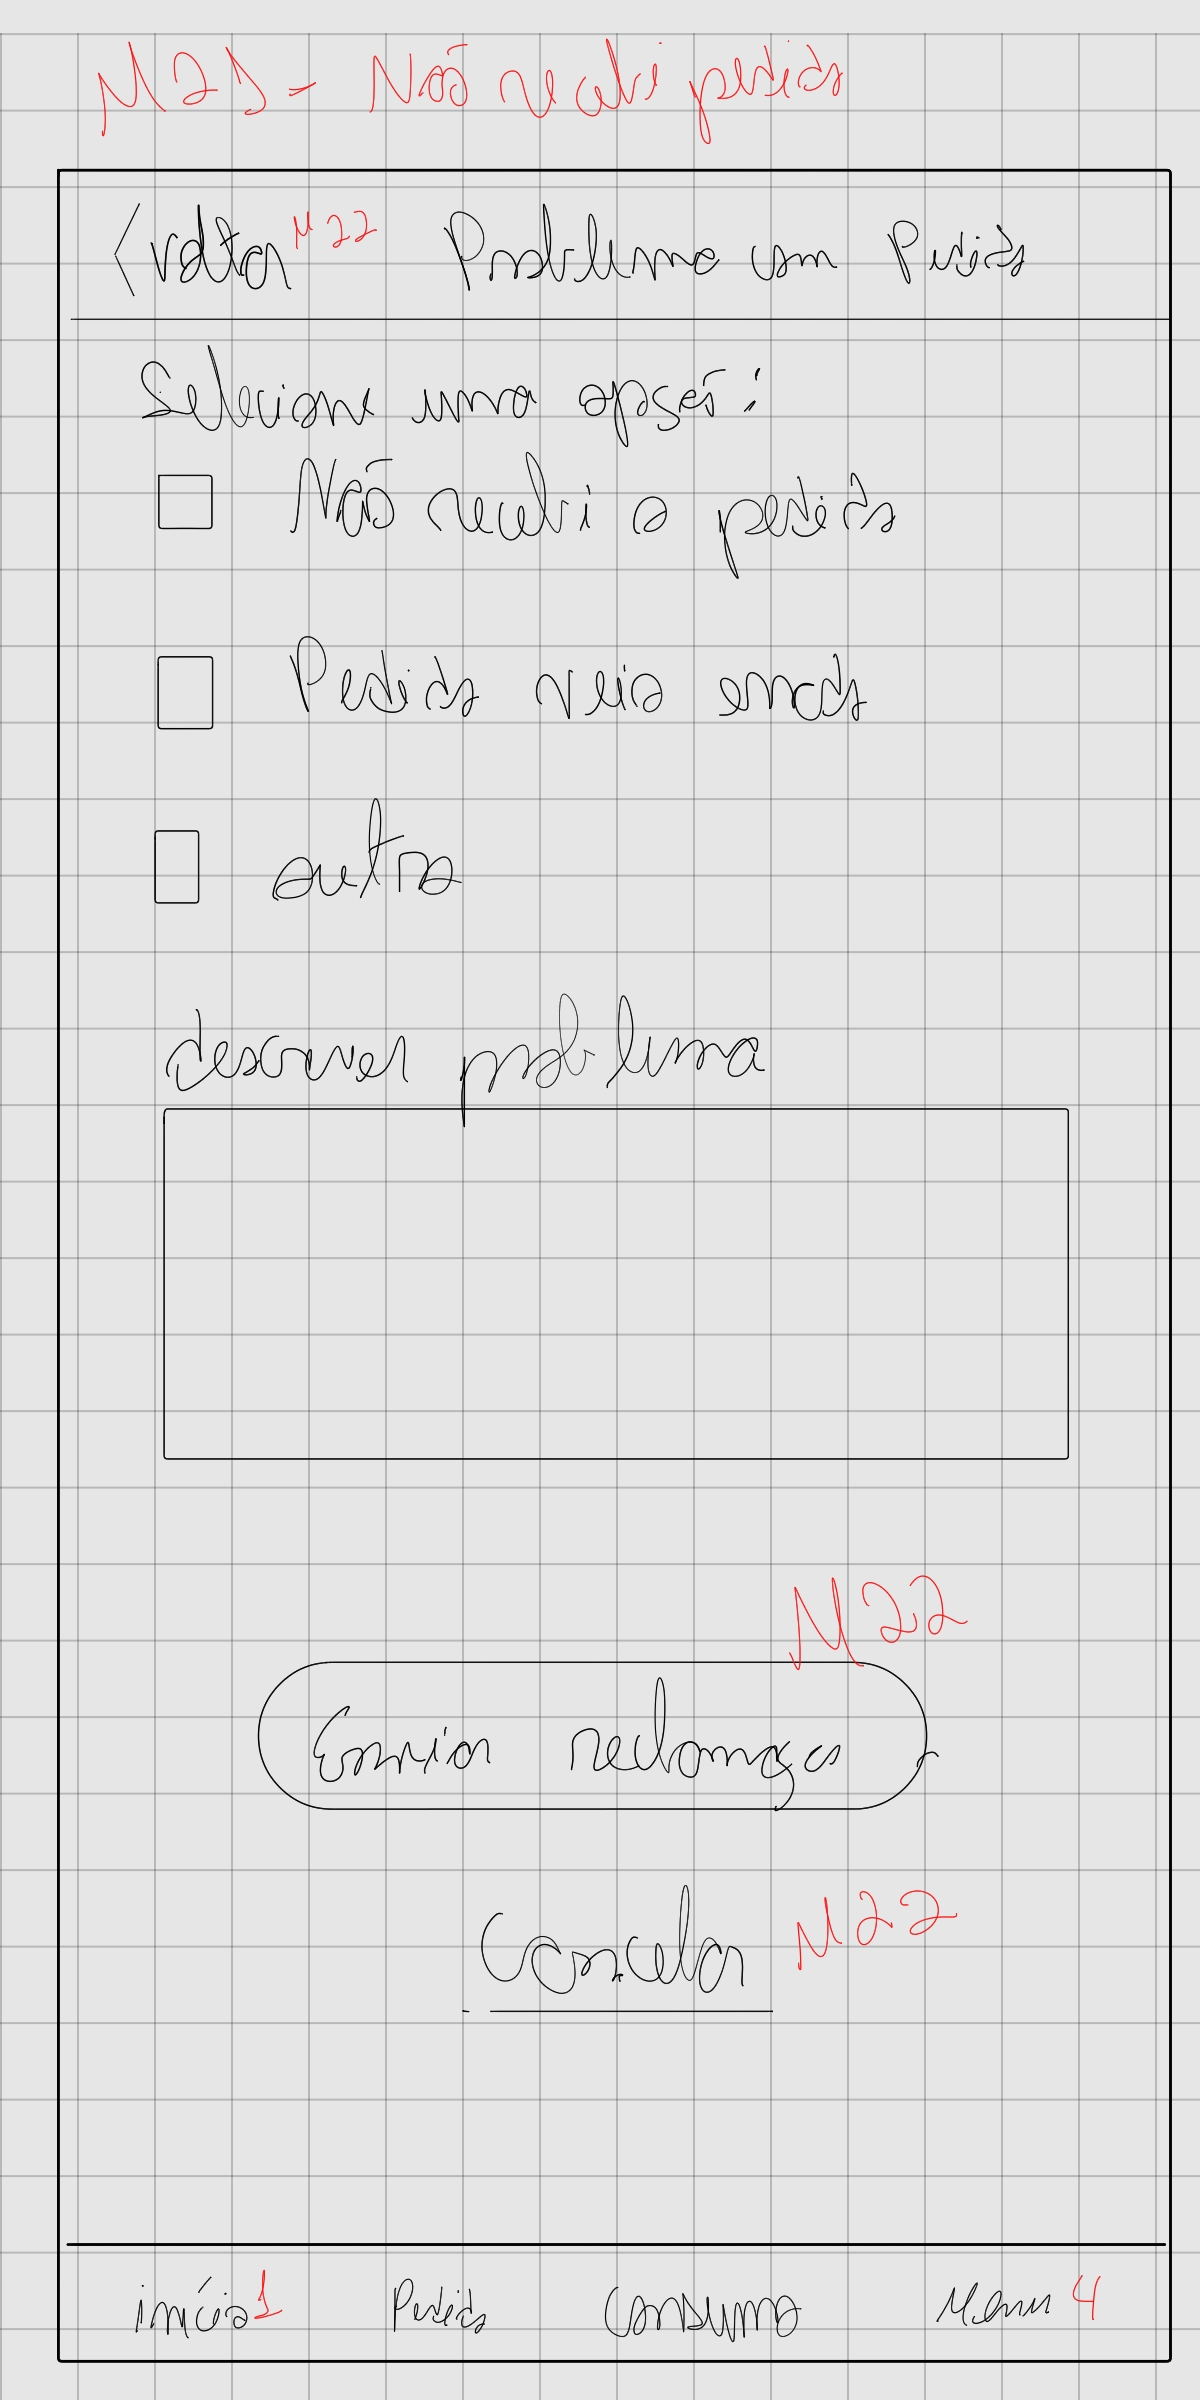 M21 - Não recebi pedido
< voltar M22 Problema com Pedido
Selecione uma opsão:
Não recebi o pedido
Pedido veio errado
outro
descrever problema
M22
Enviar reclamação
Cancelar M22
início 1 Pedido Consumo Menu 4